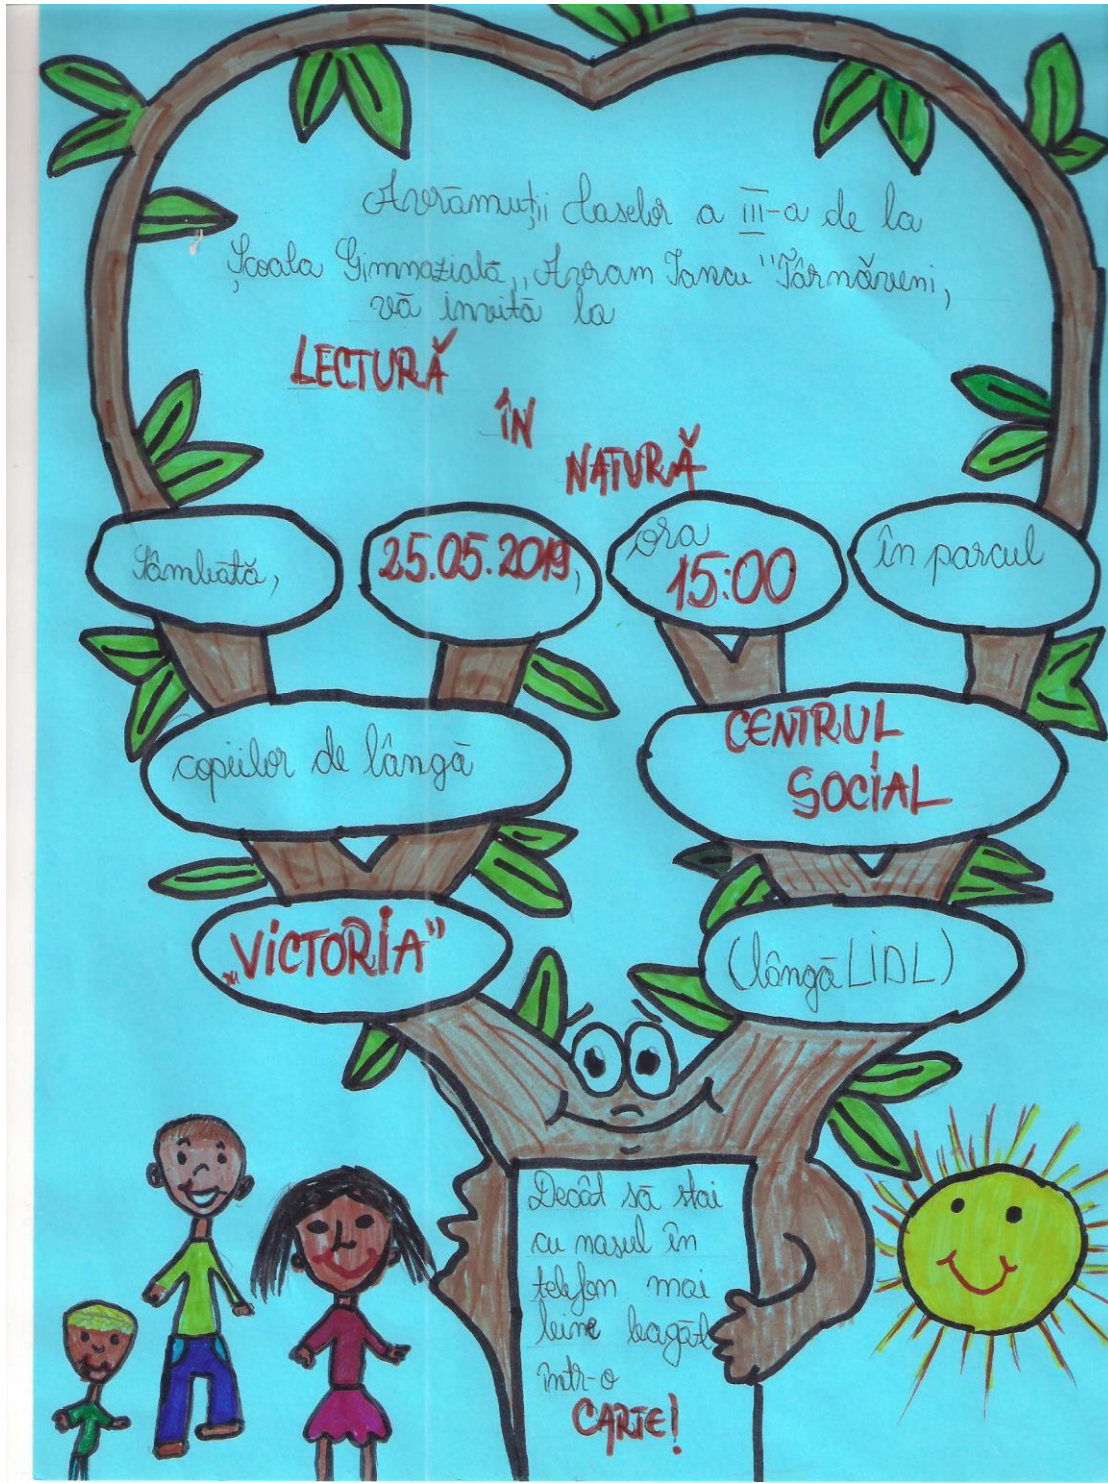 Avrămuții claselor a III-a de la
Școala Gimnazială „Avram Iancu" Târnăveni,
vă invită la
LECTURĂ
ÎN
NATURĂ
Sâmbătă,
25.05.2019,
ora
15:00
în parcul
copiilor de lângă
CENTRUL
SOCIAL
„VICTORIA"
(lângă LIDL)
Decât să stai
cu nasul în
telefon mai
bine bagăl
într-o
CARTE!